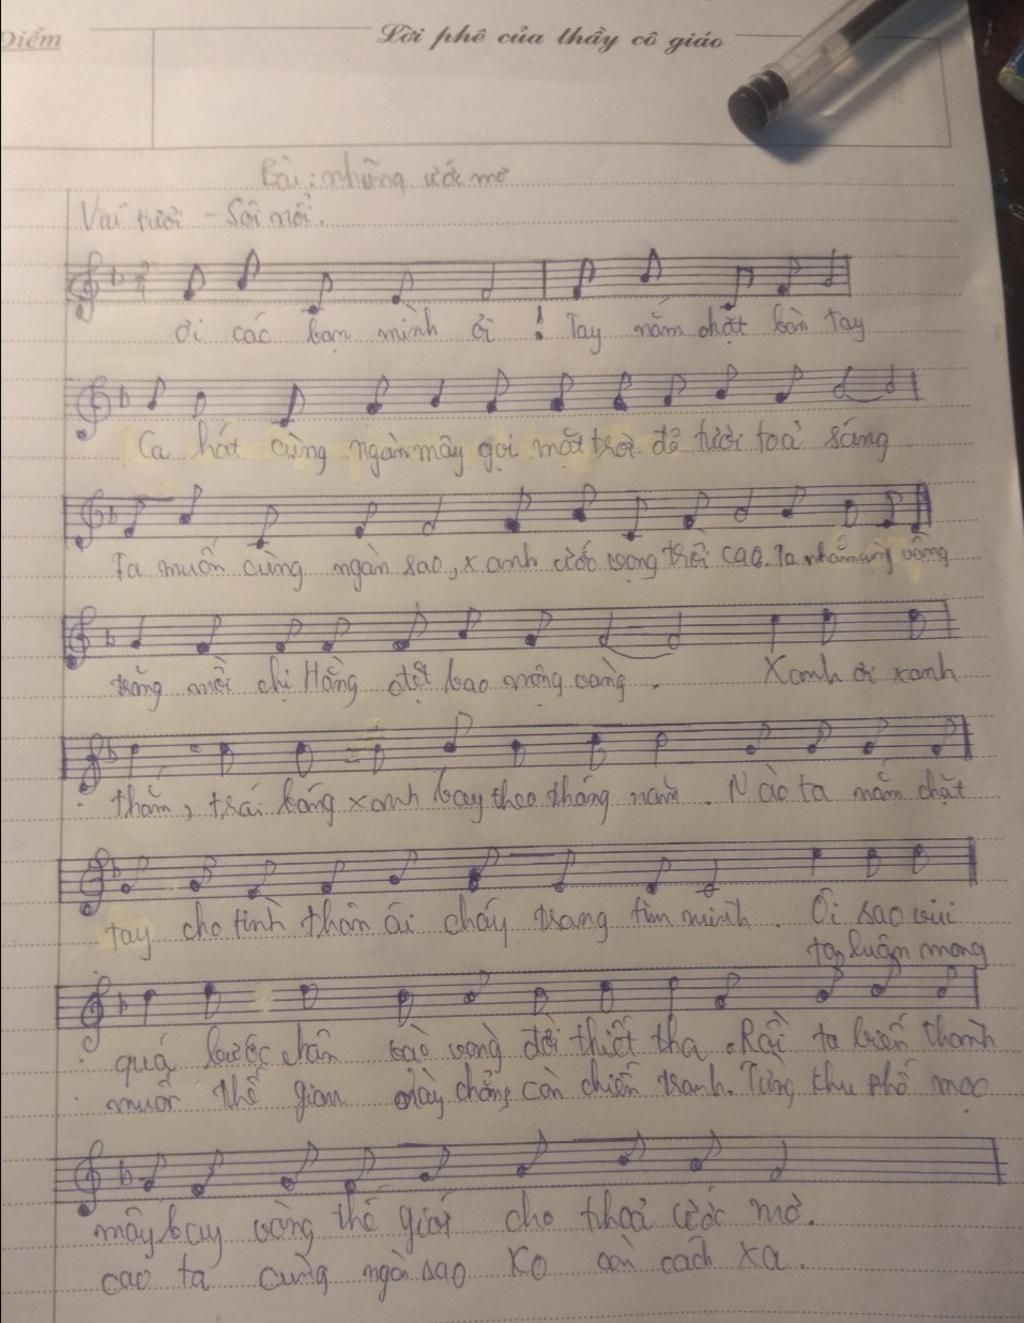 Điểm
Lời phê của thầy cô giáo
Bài: những ước mơ
Vui tươi - Sôi nổi.
ơi các bạn mình ơi ! Tay nắm chặt bàn tay
Ca hát cùng ngàn mây gọi mặt trời đỏ tươi toả sáng
Ta muốn cùng ngàn sao, xanh ước vọng trời cao. Ta nhắm cùng vầng
trăng mời chị Hằng dệt bao mộng vàng. Xanh ơi xanh
thắm, trái bóng xanh bay theo tháng năm. Nào ta nắm chặt
tay cho tình thân ái cháy trong tim mình. Ôi sao vui
ta luôn mong
quá bước chân vào vòng đời thiết tha. Rồi ta biến thành
muốn thế gian này chẳng còn chiến tranh. Từng khu phố mọc
mây bay vòng thế giới cho thoả ước mơ.
cao ta cùng ngàn sao Ko còn cách xa.